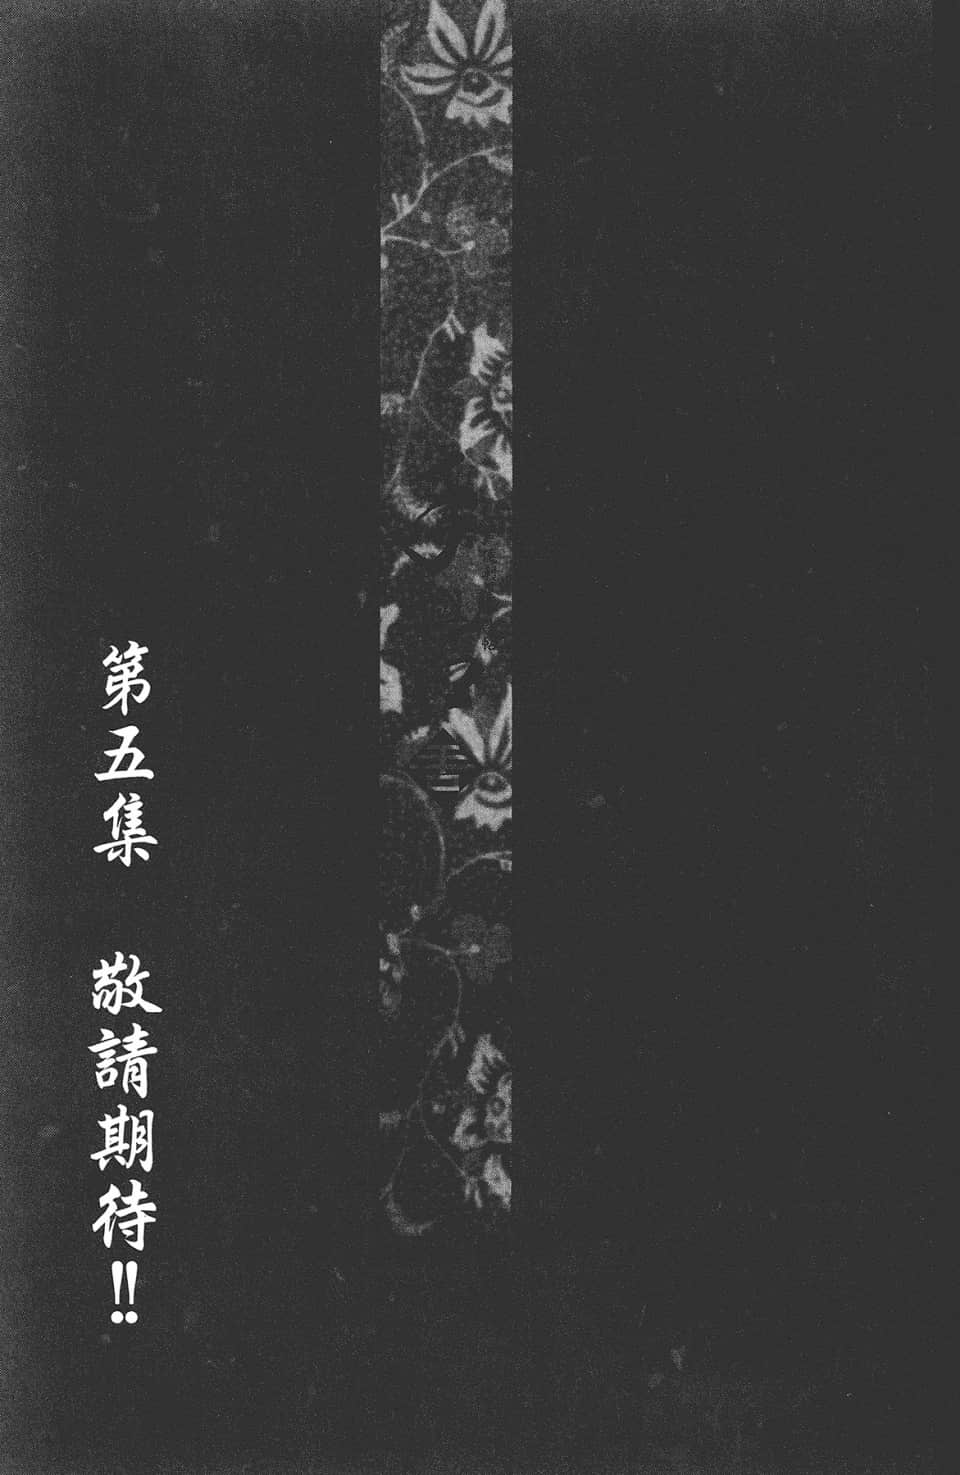 第五集　敬請期待!!